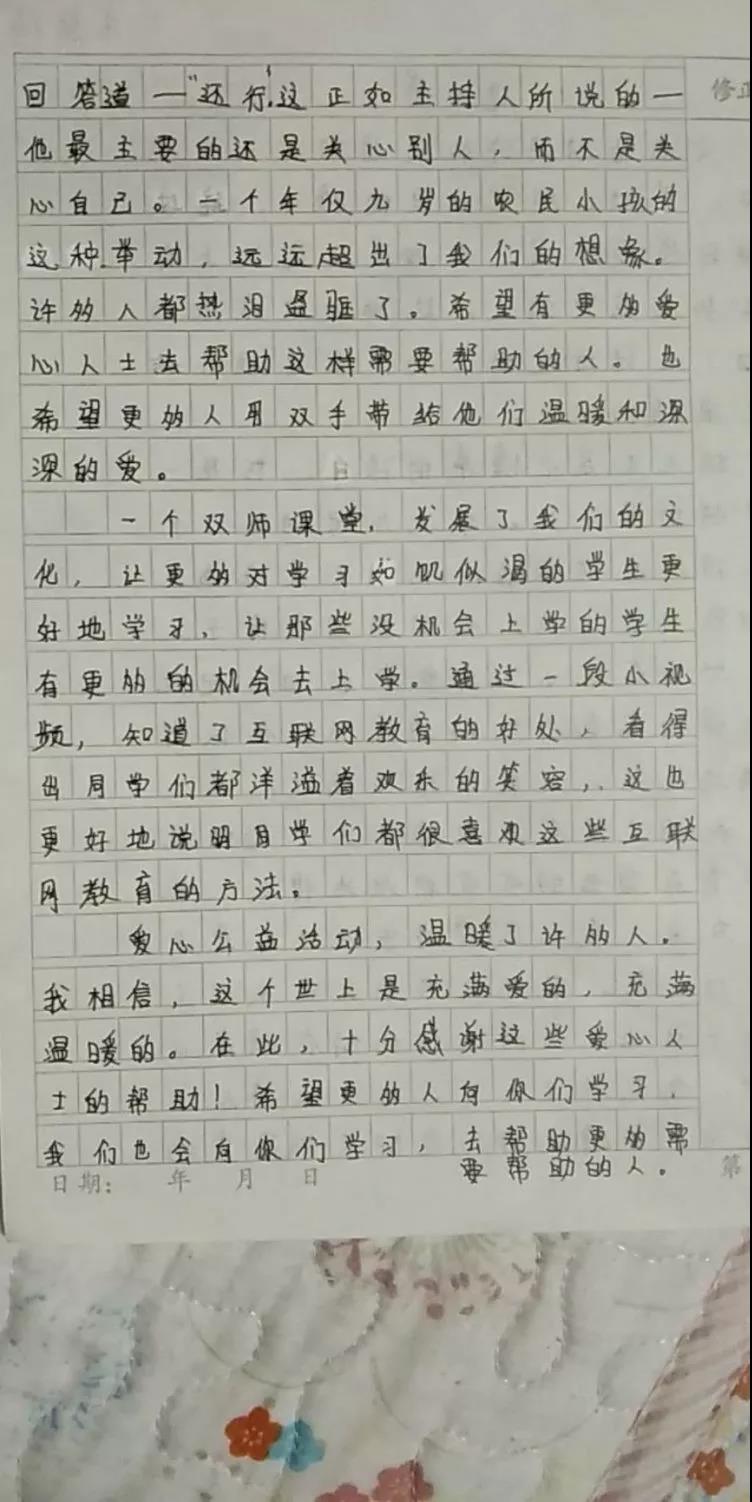 回答道—“还行”,这正如主持人所说的—
修正
他最主要的还是关心别人,而不是关
心自己。一个年仅九岁的农民小孩的
这种举动,远远超出了我们的想象。
许多人都热泪盈眶了。希望有更多爱
心人士去帮助这样需要帮助的人。也
希望更多人用双手带给他们温暖和深
深的爱。
一个双师课堂,发展了我们的文
化,让更多对学习如饥似渴的学生更
好地学习,让那些没机会上学的学生
有更多的机会去上学。通过一段小视
频,知道了互联网教育的好处,看得
出同学们都洋溢着欢乐的笑容,这也
更好地说明同学们都很喜欢这些互联
网教育的方法。
爱心公益活动,温暖了许多人。
我相信,这个世上是充满爱的,充满
温暖的。在此,十分感谢这些爱心人
士的帮助!希望更多人向你们学习,
我们也会向你们学习,去帮助更多需
要帮助的人。
日期: 年 月 日
第